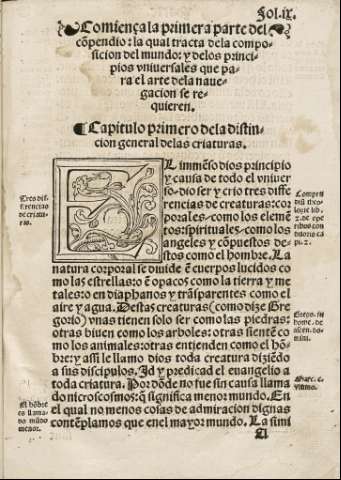 Fol.ix.
Comiença la primera parte del
cõpendio: la qual tracta dela compo-
sicion del mundo: y delos princi-
pios vniuersales que pa-
ra el arte dela naue-
gacion se re-
quieren.
Capitulo primero dela distin-
cion general delas criaturas.
EL immẽso dios principio
y causa de todo el vniuer
so, dio ser y crio tres diffe
rencias de creaturas: cor
porales, como los elemẽ
tos: spirituales, como los
angeles y cõpuestos de-
stos como el hombre. La
natura corporal se diuide ẽ cuerpos lucidos co
mo las estrellas: o ẽ opacos como la tierra y me
tales: o en diaphanos y trãsparentes como el
aire y agua. Destas creaturas (como dize Gre
gorio) vnas tienen solo ser como las piedras:
otras biuen como los arboles: otras sientẽ co
mo los animales: otras entienden como el hõ-
bre: y assi le llamo dios toda creatura diziẽdo
a sus discipulos. Id y predicad el euangelio a
toda criatura. Por dõde no fue sin causa llama
do microscosmos: q̃ significa menor mundo. En
el qual no menos cosas de admiracion dignas
contẽplamos que en el mayor mundo. La simi
A
Tres dif-
ferencias
de criatu-
ras.
El hõbre
es llama-
do mũdo
menor.
Compen
diũ theo
logie lib.
2. de
Grego. in
home. de
ascen. do-
mini.
Marc. c.
vltimo.